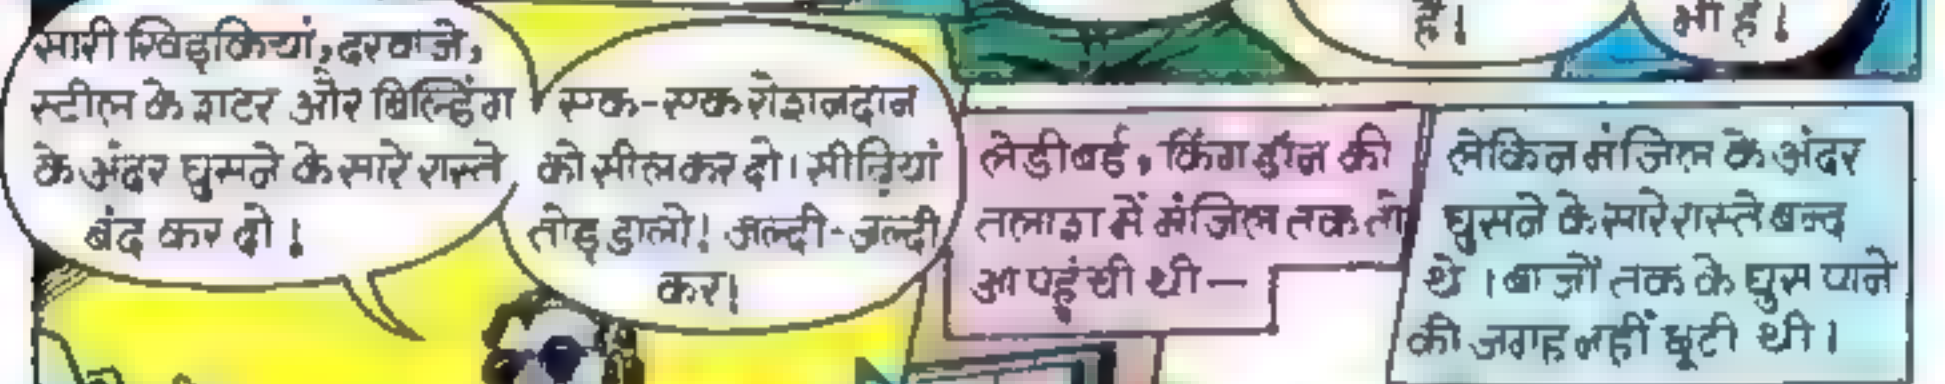 है।
भी है।
सारी खिड़कियां, दरवाजे,
स्टील के शटर और बिल्डिंग
के अंदर घुसने के सारे रास्ते
बंद कर दो!
एक-एक रोशनदान
को सील कर दो। सीढ़ियां
तोड़ डालो! जल्दी-जल्दी
कर।
लेडीबर्ड, किंग डॉन की
तलाश में मंजिल तक तो
आ पहुंची थी—
लेकिन मंजिल के अंदर
घुसने के सारे रास्ते बन्द
थे। बाजों तक के घुस पाने
की जगह नहीं छूटी थी।